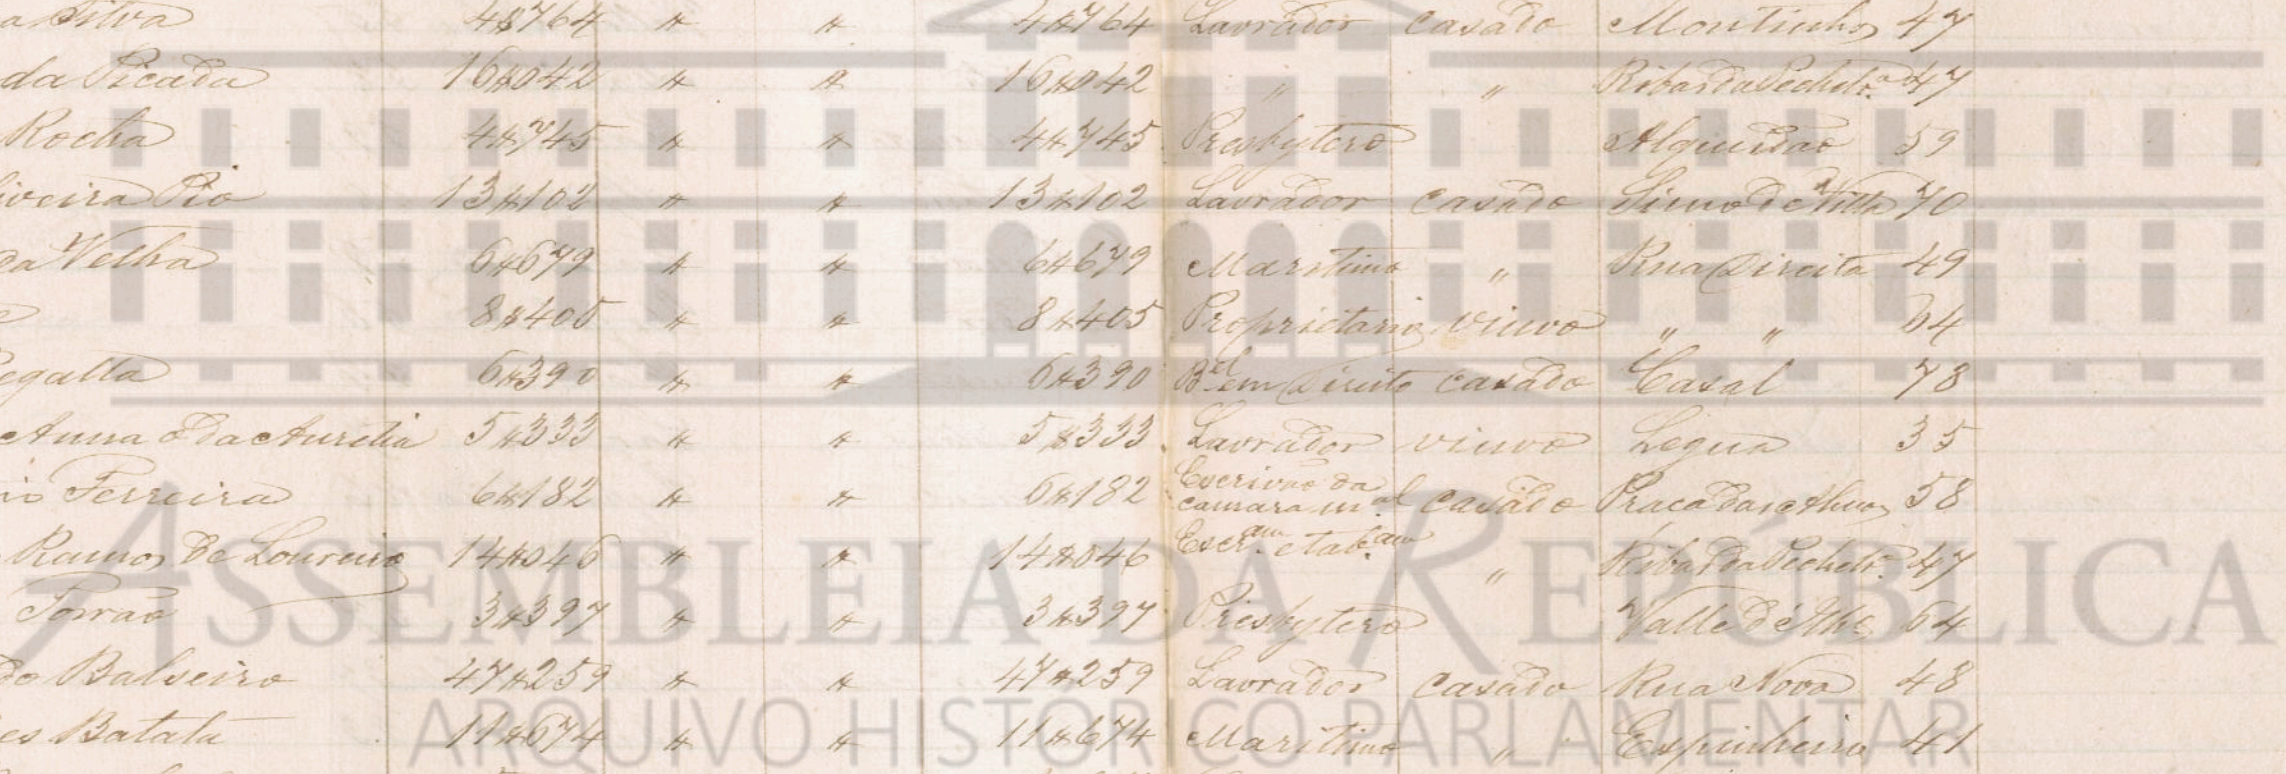 a Silva 4$764 " " 4$764 Lavrador casado Montinho 47
da Picada 16$042 " " 16$042 " " Ribas da Pechelrª 47
Rocha 4$745 " " 4$745 Presbytero Alqueidão 59
iveira Pio 13$102 " " 13$102 Lavrador casado Simo de Villa 70
da Velha 6$679 " " 6$679 Maritimo " Rua Direita 49
8$405 " " 8$405 Proprietario viuvo " " 64
egalla 6$390 " " 6$390 Bel em Direito casado Casal 78
Anna da Aurelia 5$333 " " 5$333 Lavrador viuvo Legua 35
io Ferreira 6$182 " " 6$182 Escrivão da camara mal casado Praça das 58
Ramos de Loureiro 14$046 " " 14$046 Escram e tabam " Ribas da Pechelrª 47
Torrão 3$397 " " 3$397 Presbytero Valle d'Ilhº 64
do Balseiro 47$259 " " 47$259 Lavrador casado Rua Nova 48
es Batata 11$674 " " 11$674 Maritimo " Espinheiro 41
ASSEMBLEIA DA REPÚBLICA
ARQUIVO HISTÓRICO PARLAMENTAR